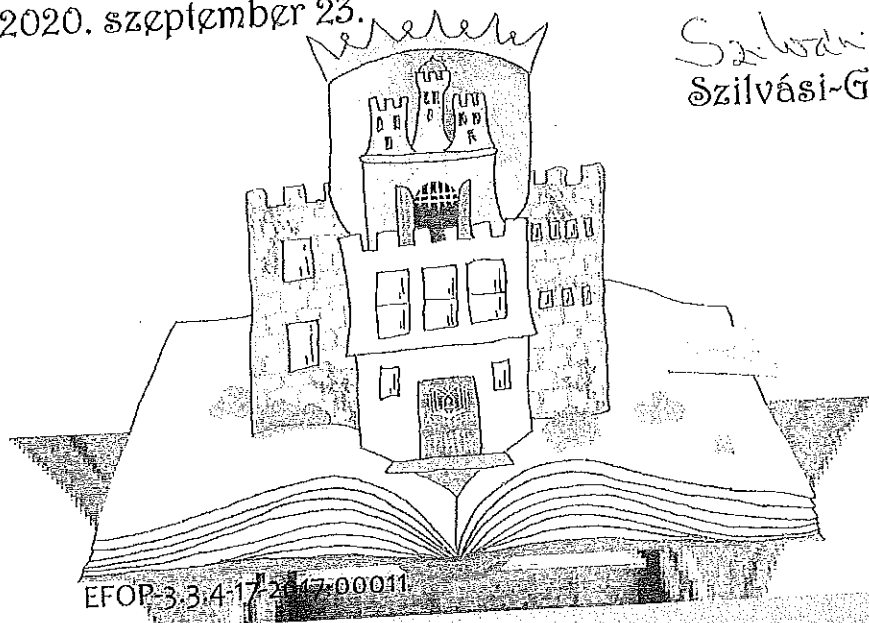 2020. szeptember 23.
Szilvási-G
EFOP-3.3.4-17-2017-00011